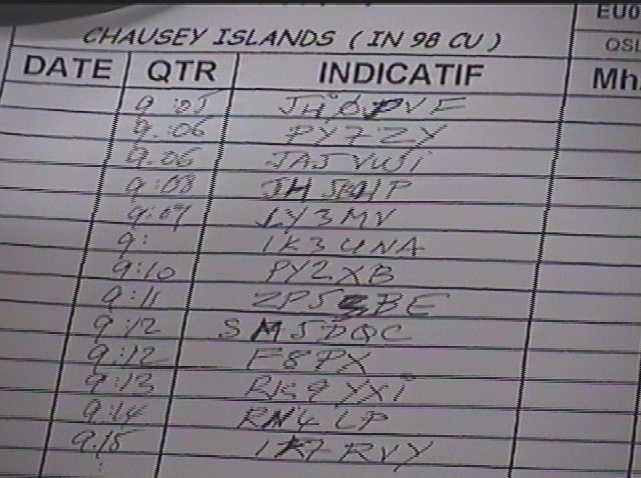 EU0
CHAUSEY ISLANDS ( IN 98 CU )
QSL
DATE QTR INDICATIF Mh
9:05
9.06 PY7ZY
9.06 JA5VWi
9:08
9:09 LY3MV
9: IK3UNA
9:10 PY2XB
9:11 ZP5 BE
9:12 SM5DQC
9:12 F8PX
9:13 RK9YXi
9:14 RN4LP
9.15 IK7RVY